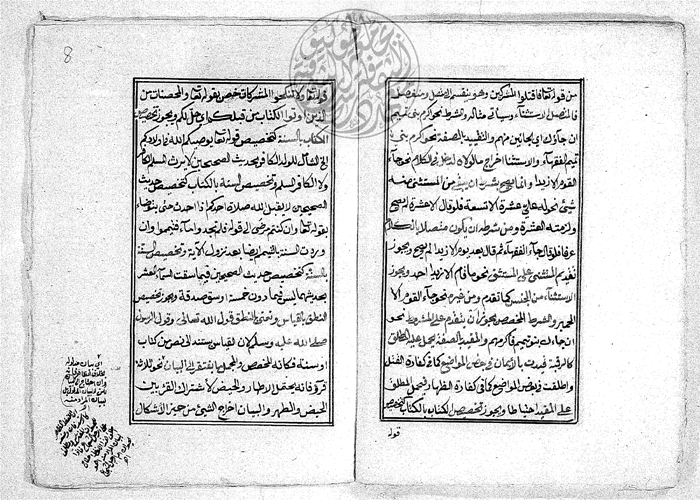 من قوله تعالى فاقتلوا المشركين وهو ينقسم الى متصل ومنفصل
فالمتصل الاستثناء وسياتى مثاله والشرط نحو اكرم بنى تميم
ان جاؤك اى الجائين منهم والتقييد بالصفة نحو اكرم بنى
تميم الفقهاء والاستثناء اخراج ما لولاه لدخل فى الكلام نحو جاء
القوم الا زيدا وانما يصح بشرط ان يبقى من المستثنى منه
شئ نحو له على عشرة الا تسعة فلو قال الا عشرة لم يصح
ولزمته العشرة ومن شرطه ان يكون متصلا بالكلام
فلو قال جاء الفقهاء ثم قال بعد يوم الا زيدا لم يصح ويجوز
تقديم المستثنى على المستثنى نحو ما قام الا زيدا احد ويجوز
الاستثناء من الجنس كما تقدم ومن غيره نحو جاء القوم الا
الحمير والشرط المخصص يجوز ان يتقدم على المشروط نحو
ان جاءك بنو تميم فاكرمهم والمقيد بالصفة يحمل على المطلق
كالرقبة قيدت بالايمان فى بعض المواضع كما فى كفارة القتل
واطلقت فى بعض المواضع كما فى كفارة الظهار فيحمل المطلق
على المقيد احتياطا ويجوز تخصيص الكتاب بالكتاب
قوله
8
قوله تعالى ولا تنكحوا المشركات خص بقوله تعالى والمحصنات من
الذين اوتوا الكتاب من قبلكم اى حل لكم ويجوز تخصيص
الكتاب بالسنة كتخصيص قوله تعالى يوصيكم الله فى اولادكم
الخ الشامل للولد الكافر بحديث الصحيحين لا يرث المسلم الكافر
ولا الكافر المسلم وتخصيص السنة بالكتاب كتخصيص حديث
الصحيحين لا يقبل الله صلاة احدكم اذا احدث حتى يتوضاء
بقوله تعالى وان كنتم مرضى الى قوله فلم تجدوا ماء فتيمموا وان
وردت السنة بالتيمم ايضا بعد نزول الاية وتخصيص السنة
بالسنة كتخصيص حديث الصحيحين فيما سقت السماء العشر
بحديثهما ليس فيما دون خمسة اوسق صدقة ويجوز تخصيص
النطق بالقياس ونعنى بالنطق قول الله تعالى وقول الرسول
صلى الله عليه وسلم لان القياس يستند الى نص من كتاب
او سنة فكانه المخصص والمجمل ما يفتقر الى البيان نحو ثلاثة
قروء فانه يحتمل الاطهار والحيض لاشتراك القرء بين
الحيض والطهر والبيان اخراج الشئ من حيز الاشكال